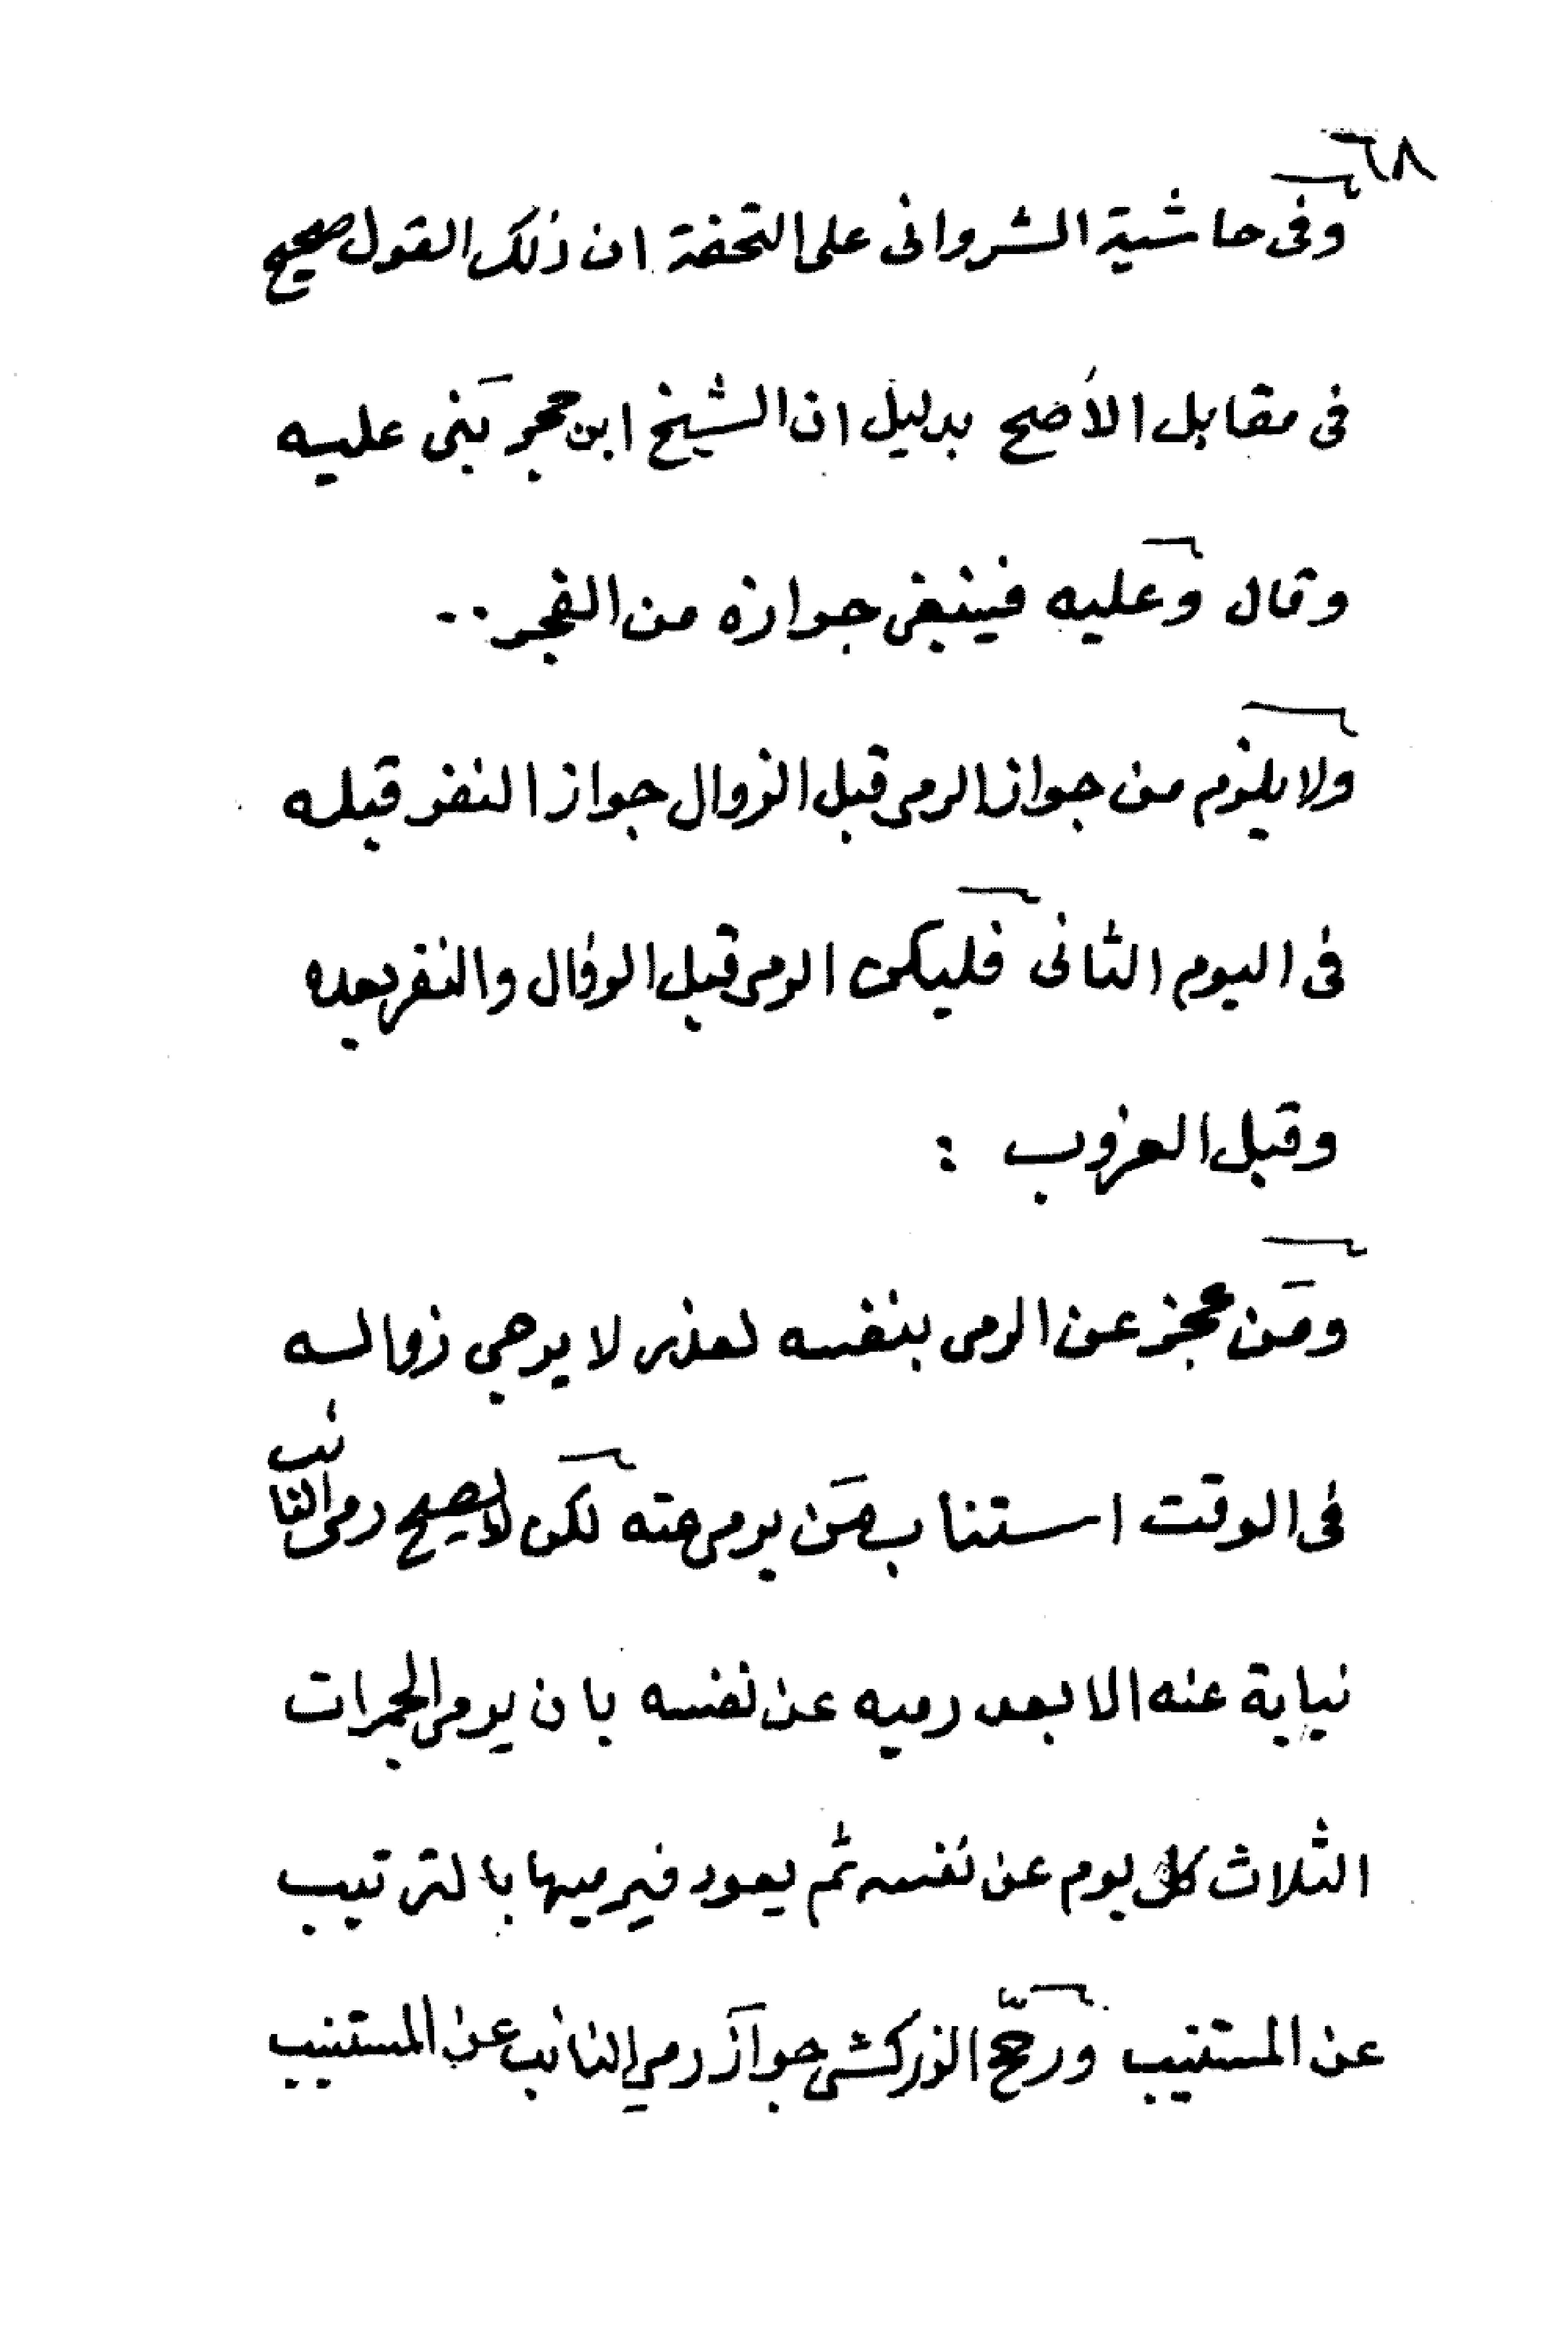 ٦٨
وفى حاشية الشروانى على التحفة ان ذلك القول صحيح
فى مقابل الأصح بدليل ان الشيخ ابن حجر بَنى عليه
وقال وعليه فينبغى جوازه من الفجر ..
ولا يلزم من جواز الرمى قبل الزوال جواز النفر قبله
فى اليوم الثانى فليكن الرمى قبل الزوال والنفر بعده
وقبل الغروب :
ومَن عجز عن الرمى بنفسه لعذر لا يرجى زواله
فى الوقت استناب مَن يرمى عنه لكن لا يصح رمى النائب
نيابة عنه الا بعد رميه عن نفسه بان يرمى الجمرات
الثلاث كل يوم عن نفسه ثم يعود فيرميها بالترتيب
عن المستنيب ورجّح الزركشى جواز رمي النائب عن المستنيب